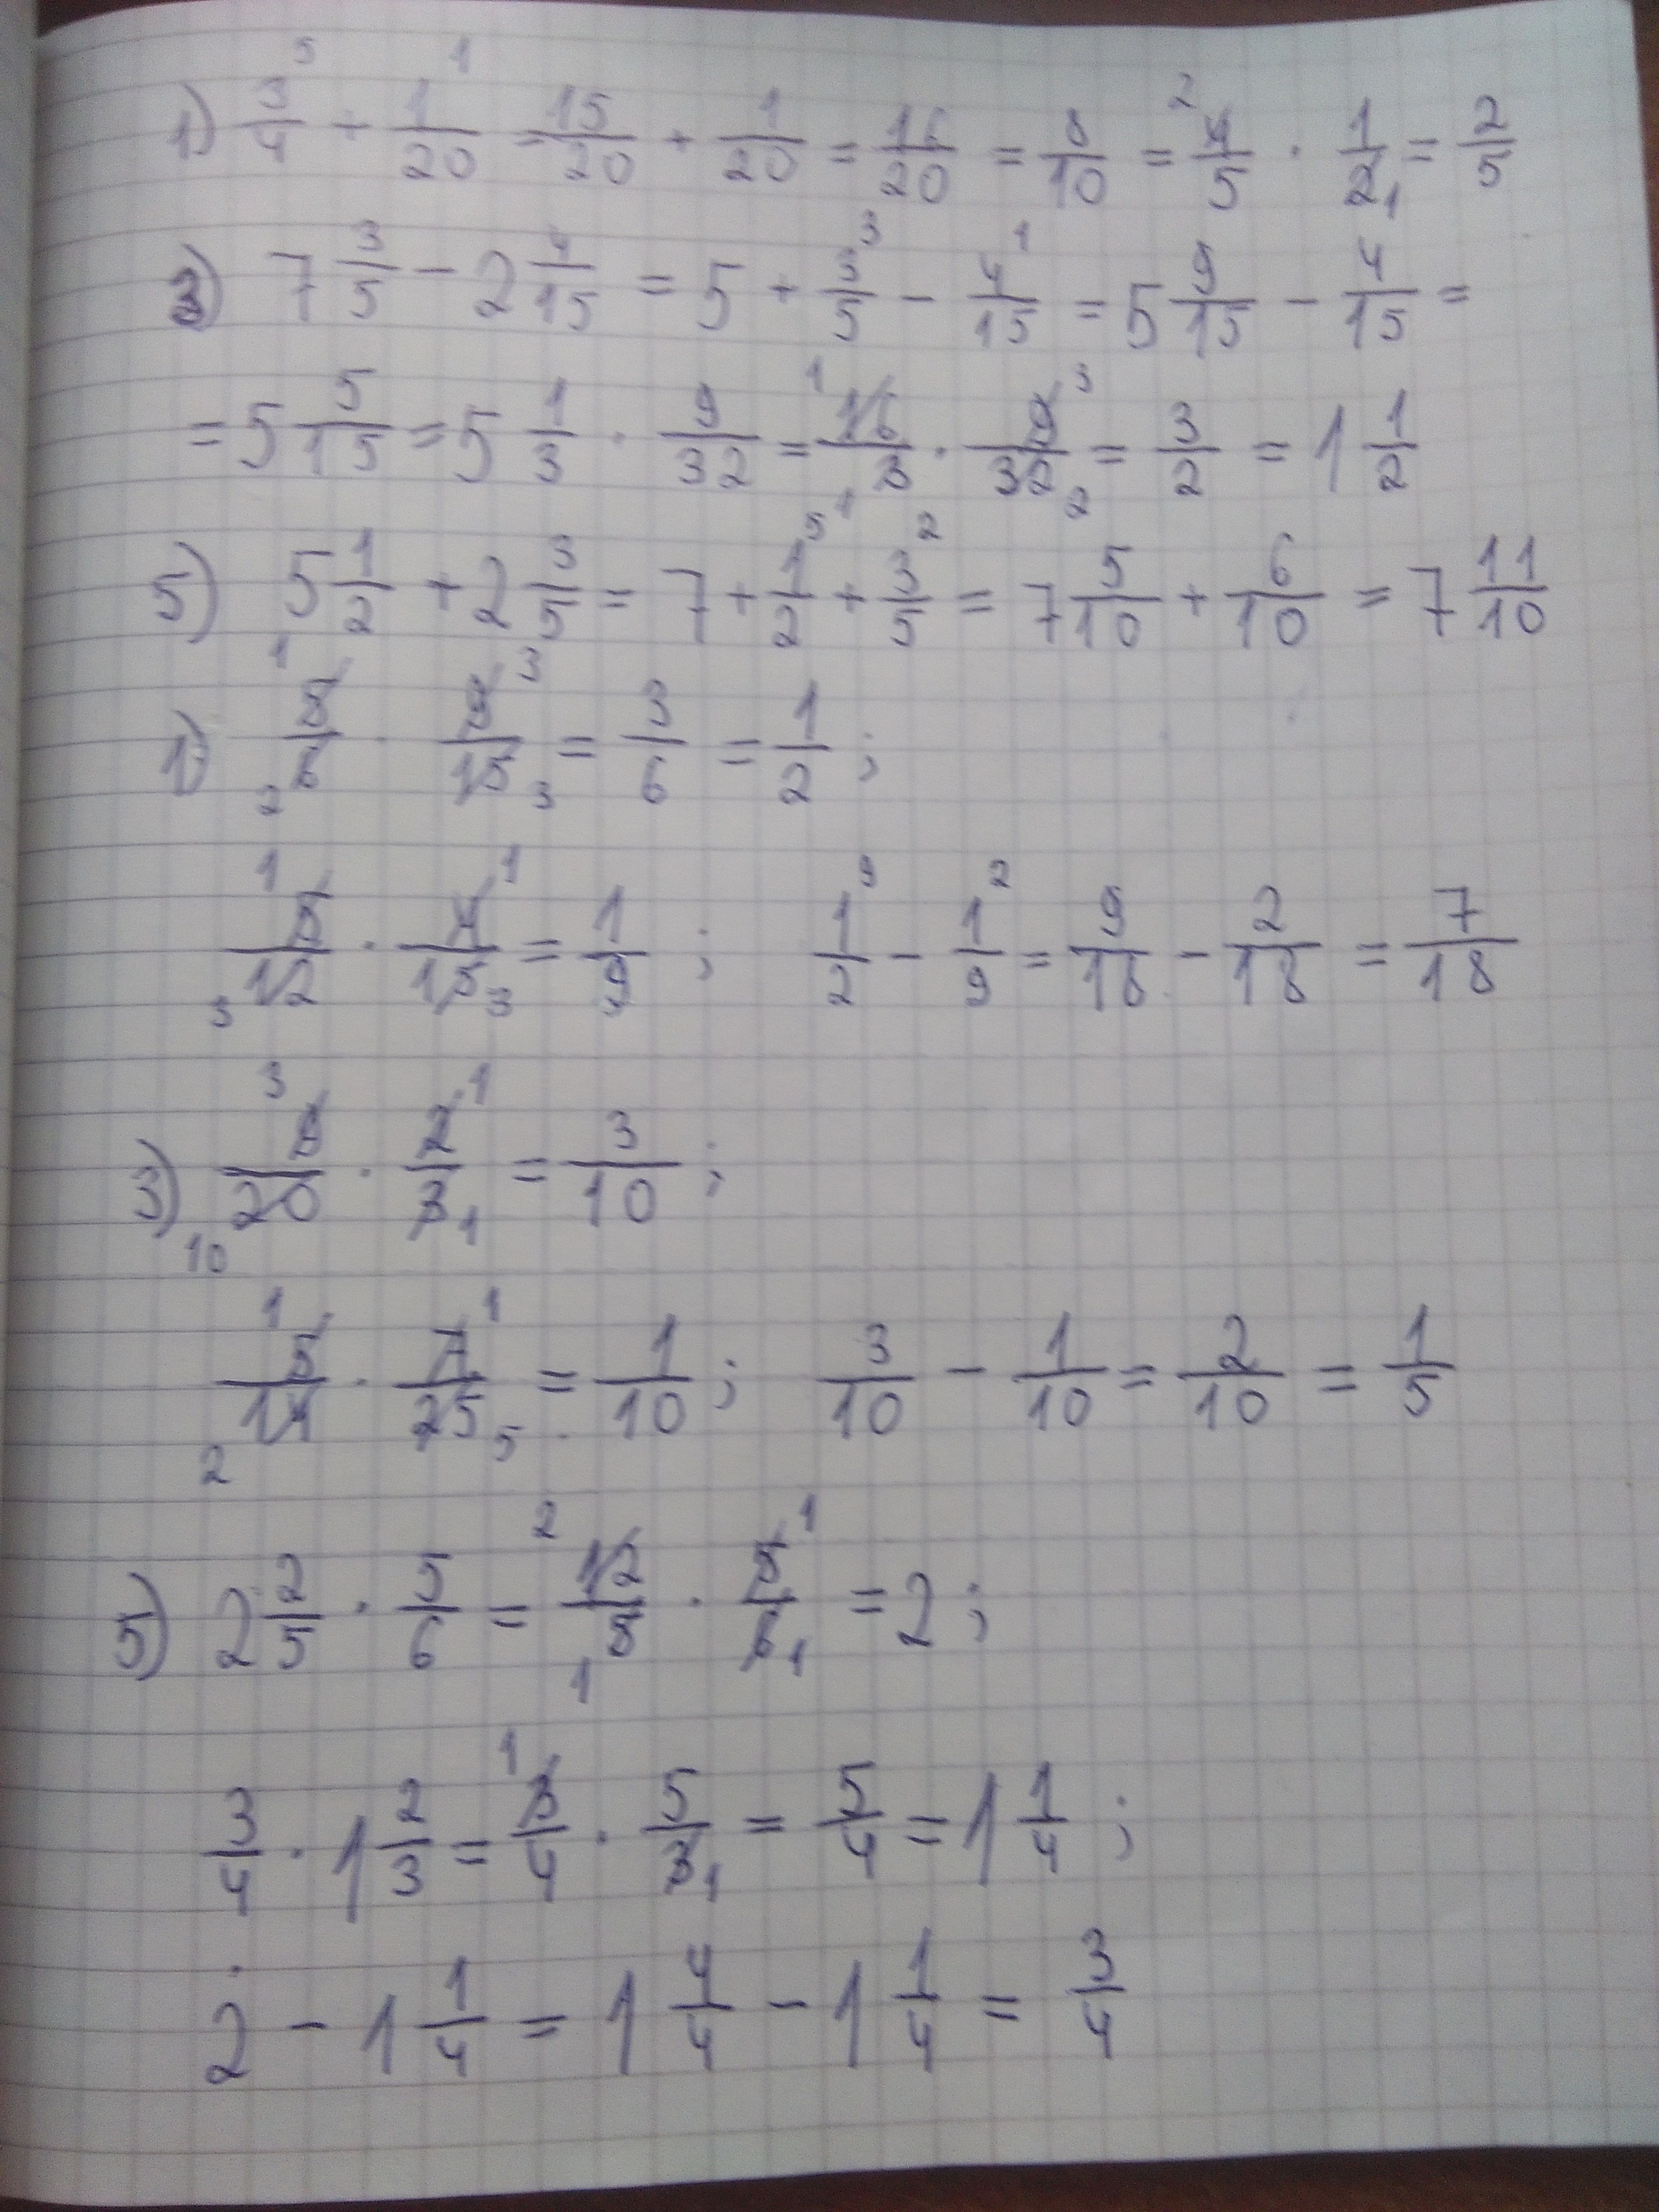 1) 3/4 ⁵ + 1/20 ¹ = 15/20 + 1/20 = 16/20 = 8/10 = ² 4/5 · 1/2 ₁ = 2/5
3) 7 3/5 - 2 4/15 = 5 + 3/5 ³ - 4/15 ¹ = 5 9/15 - 4/15 =
= 5 5/15 = 5 1/3 · 9/32 = ¹ 16/3 ₁ · 9/32 ³ ₂ = 3/2 = 1 1/2
5) 5 1/2 + 2 3/5 = 7 + 1/2 ⁵ + 3/5 ² = 7 5/10 + 6/10 = 7 11/10
1) ¹ ₂ 5/6 · 9/15 ³ ₃ = 3/6 = 1/2 ;
¹ ₃ 5/12 · 4/15 ¹ ₃ = 1/9 ; 1/2 ⁹ - 1/9 ² = 9/18 - 2/18 = 7/18
3) ³ ₁₀ 9/20 · 2/3 ¹ ₁ = 3/10 ;
¹ ₂ 5/14 · 7/25 ¹ ₅ = 1/10 ; 3/10 - 1/10 = 2/10 = 1/5
5) 2 2/5 · 5/6 = ² ₁ 12/5 · 5/6 ¹ ₁ = 2 ;
3/4 · 1 2/3 = ¹ 3/4 · 5/3 ₁ = 5/4 = 1 1/4 ;
2 - 1 1/4 = 1 4/4 - 1 1/4 = 3/4